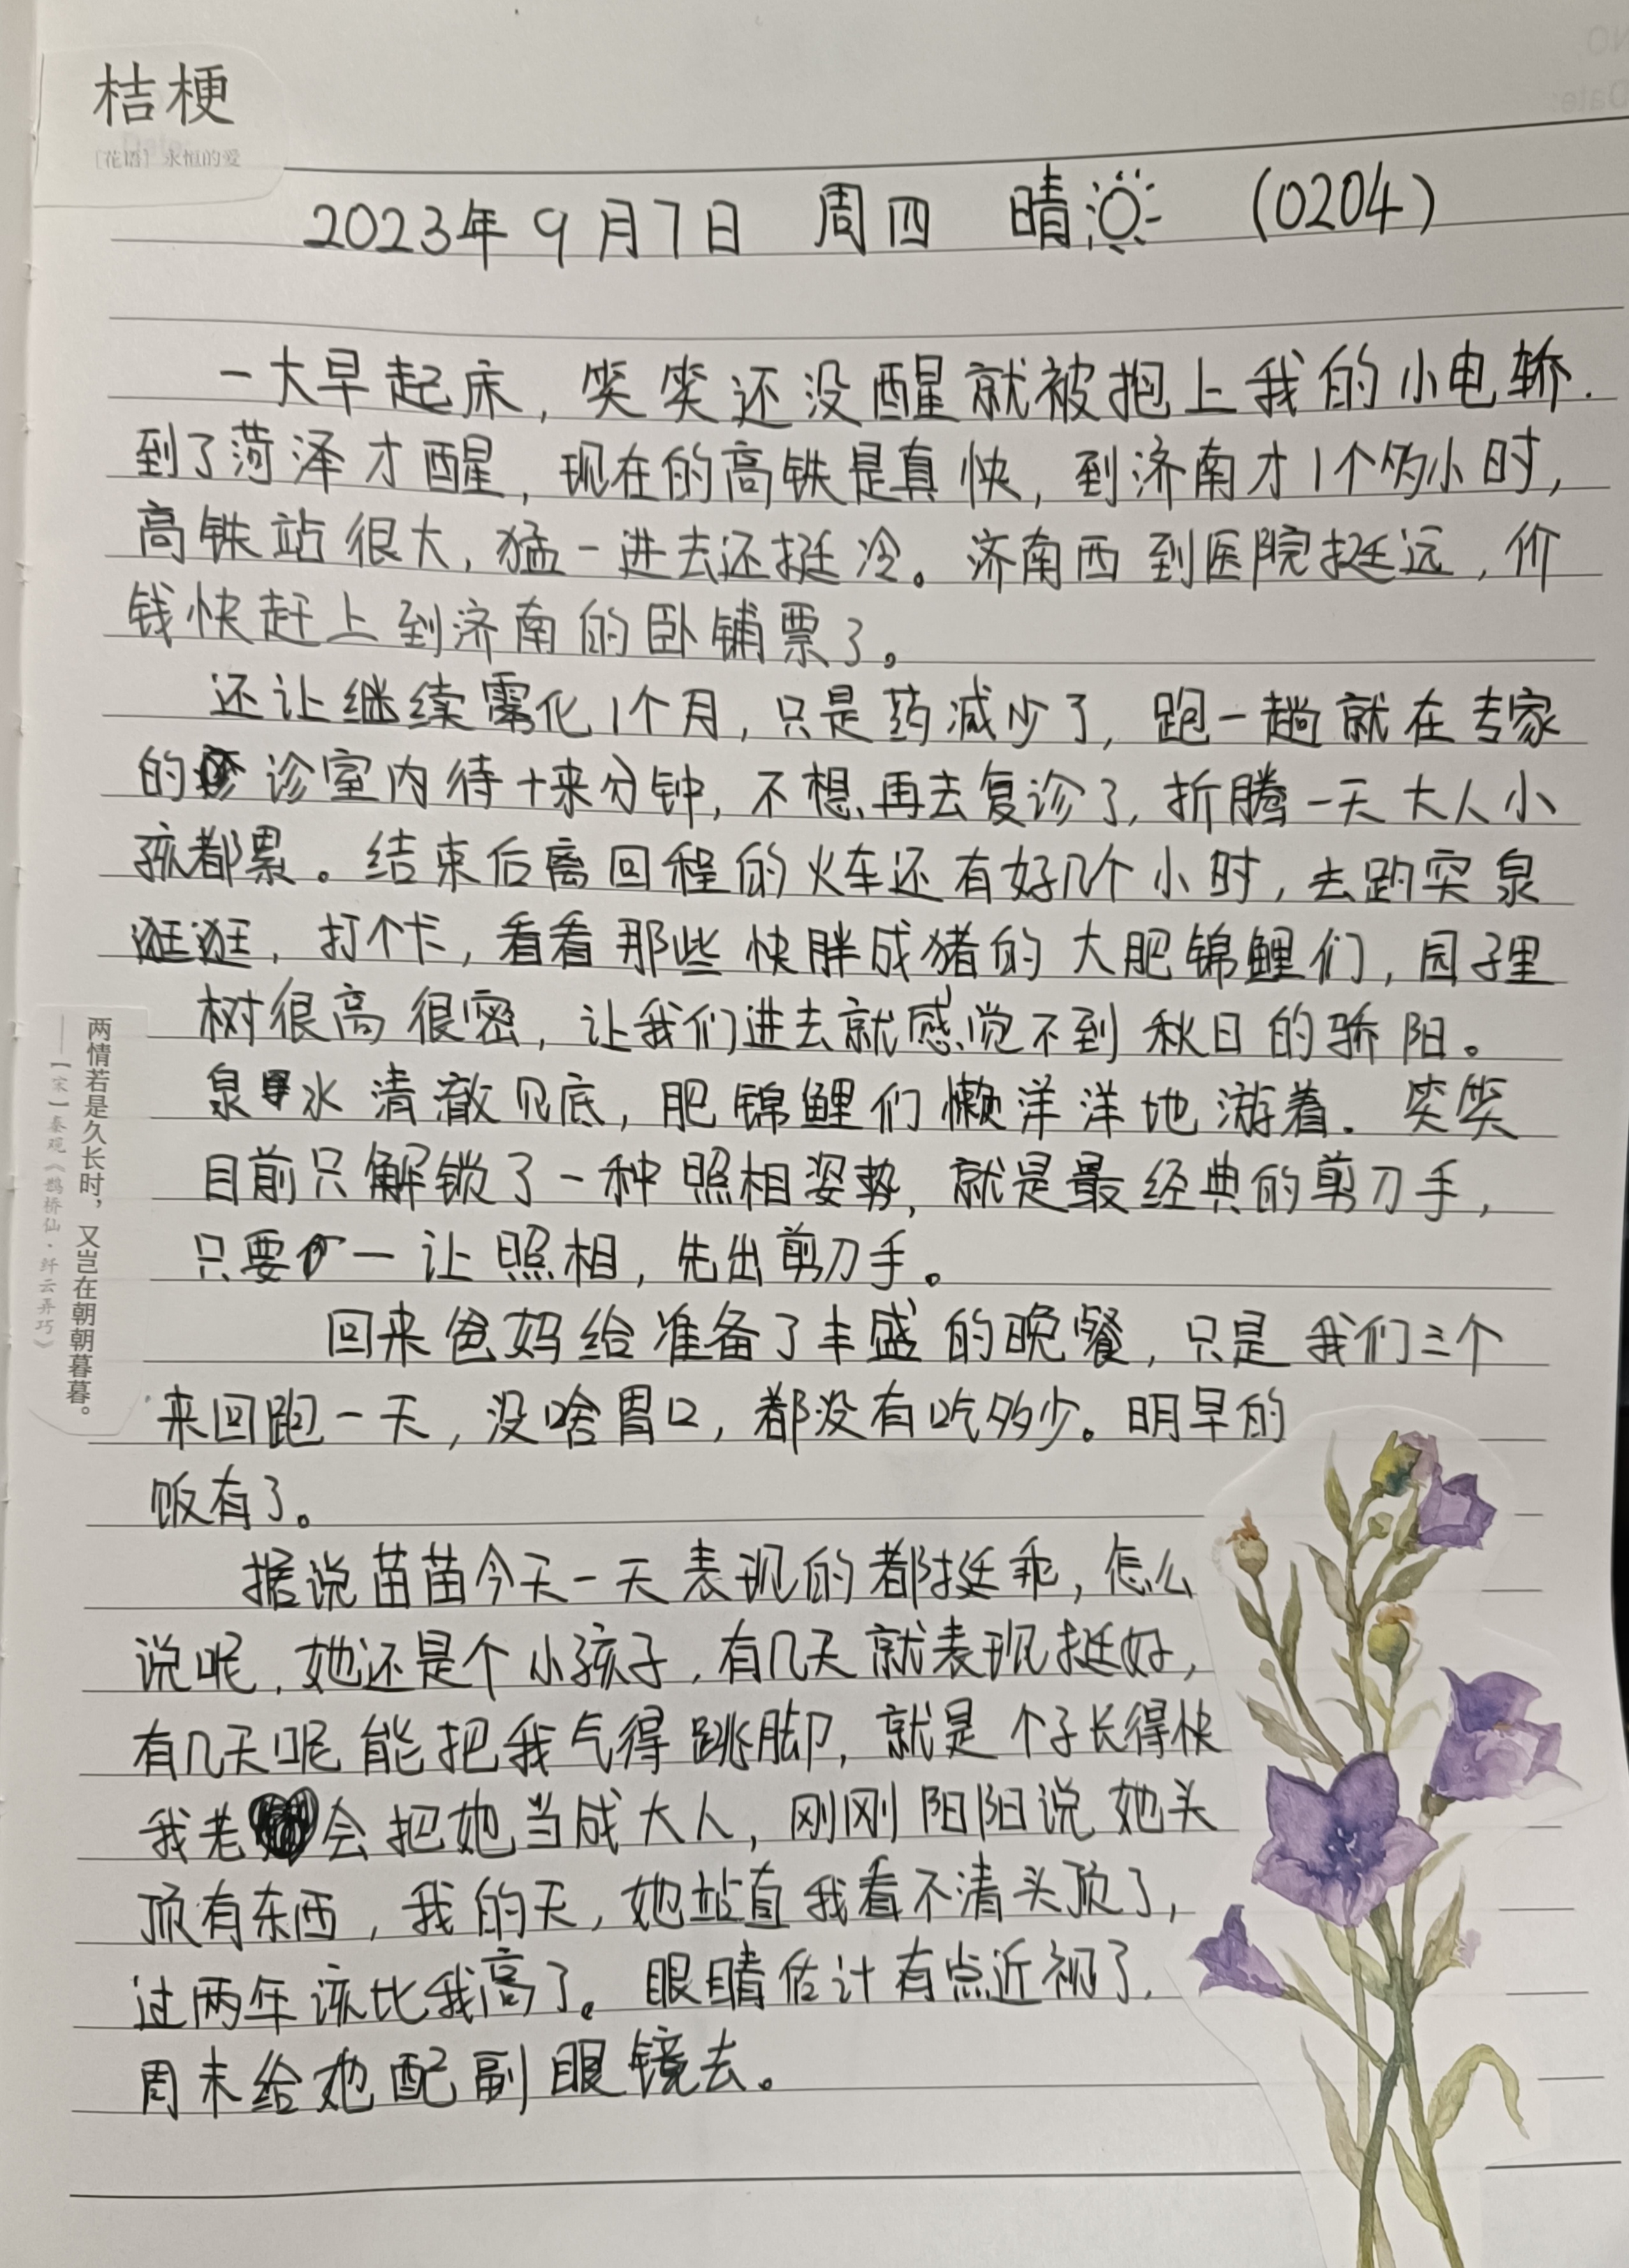 桔梗
［花语］永恒的爱
2023年9月7日 周四 晴 (0204)
一大早起床，笑笑还没醒就被抱上我的小电轿.
到了菏泽才醒，现在的高铁是真快，到济南才1个多小时，
高铁站很大，猛一进去还挺冷。济南西到医院挺远，价
钱快赶上到济南的卧铺票了。
还让继续雾化1个月，只是药减少了，跑一趟就在专家
的诊室内待十来分钟，不想再去复诊了，折腾一天大人小
孩都累。结束后离回程的火车还有好几个小时，去趵突泉
逛逛，打个卡，看看那些快胖成猪的大肥锦鲤们，园子里
树很高很密，让我们进去就感觉不到秋日的骄阳。
泉水清澈见底，肥锦鲤们懒洋洋地游着. 笑笑
目前只解锁了一种照相姿势，就是最经典的剪刀手，
只要一让照相，先出剪刀手。
回来爸妈给准备了丰盛的晚餐，只是我们三个
来回跑一天，没啥胃口，都没有吃多少。明早的
饭有了。
据说苗苗今天一天表现的都挺乖，怎么
说呢，她还是个小孩子，有几天就表现挺好，
有几天呢能把我气得跳脚，就是个子长得快
我老会把她当成大人，刚刚阳阳说她头
顶有东西，我的天，她站直我看不清头顶了，
过两年该比我高了。眼睛估计有点近视了.
周末给她配副眼镜去。
两情若是久长时，又岂在朝朝暮暮。
——［宋］秦观《鹊桥仙·纤云弄巧》